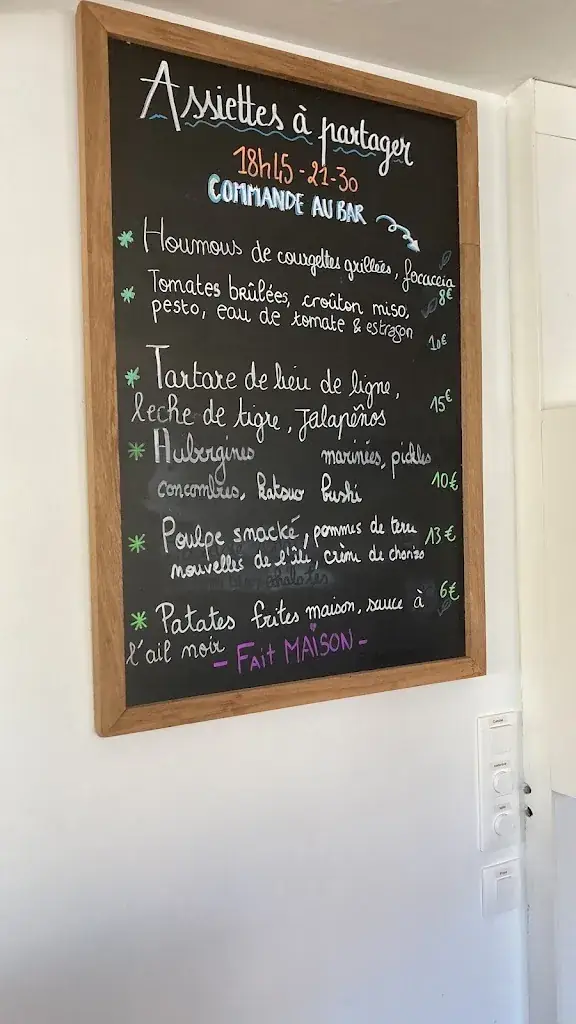 Assiettes à partager
18h45-21-30
COMMANDE AU BAR
* Houmous de courgettes grillées, focaccia
8€
* Tomates brûlées, croûton miso,
pesto, eau de tomate & estragon
10€
* Tartare de lieu de ligne,
leche de tigre, Jalapeños
15€
* Aubergines marinées, pickles
concombres, Katsuo bushi
10€
* Poulpe snacké, pommes de terre
nouvelles de l'île, crème de chorizo
13€
* Patates frites maison, sauce à
l'ail noir
6€
- FAIT MAISON -